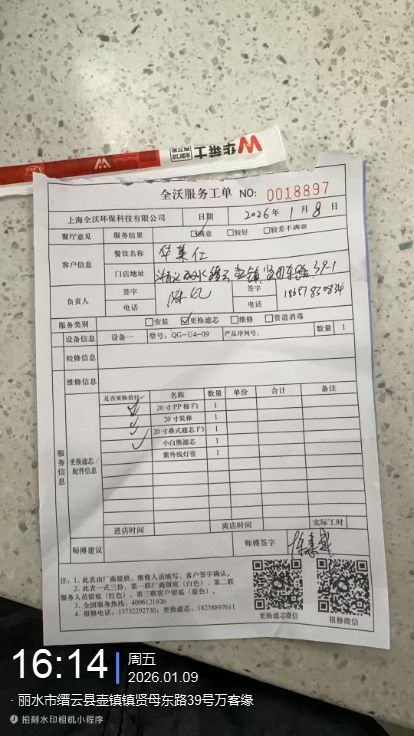 华莱士
全沃服务工单 NO: 0018897
上海全沃环保科技有限公司 日期 2026年 1月 8日
餐厅意见 服务结果 ☑满意 □较好 □较差不满意
客户信息 餐饮名称 华莱仕
门店地址 缙云 壶镇 贤母东路39-1
负责人 签字 签字
电话 电话
服务类别 □安装 ☑更换滤芯 □维修 □管道消毒
设备信息 设备一 型号: QG-U4-09 产品序列号: 数量 1
检修信息
维修信息
服务信息
更换滤芯/配件信息
是否更换请打✓ 名称 数量 单价 合计 备注
✓ 20寸PP棉F1 1
✓ 20寸炭棒 1
✓ 20寸叠式滤芯F3 1
✓ 小白熊滤芯 1
紫外线灯管 1
进店时间 离店时间 实际工时
师傅建议 师傅签字
注: 1. 此表由厂商提供、维修人员填写、客户签字确认。
2. 此表一式三份, 第一联厂商留底(白色)、第二联
服务人员留底(红色)、第三联客户留底(蓝色)。
3. 全国服务热线: 4006121926
4. 报修电话: 13732292730; 更换滤芯: 18258897611
更换滤芯微信 报修微信
16:14 周五
2026.01.09
· 丽水市缙云县壶镇镇贤母东路39号万客缘
拍刻水印相机小程序